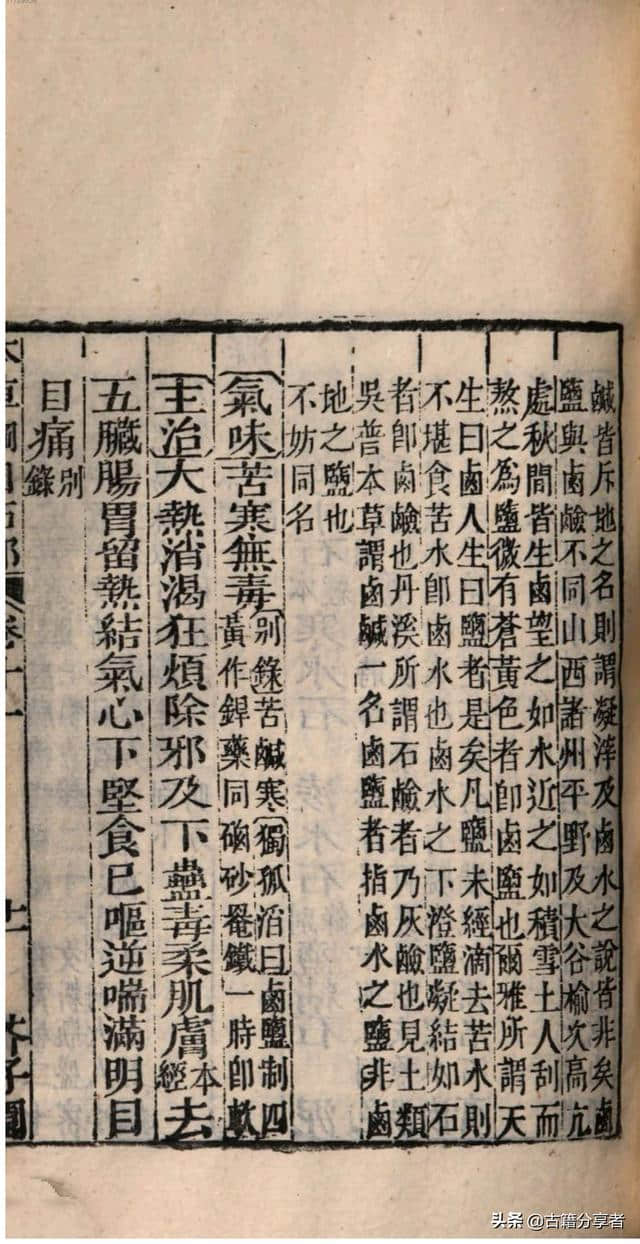 鹹皆斥地之名則謂凝滓及鹵水之說皆非矣鹵
鹽與鹵鹼不同山西諸州平野及大谷榆次高亢
處秋間皆生鹵望之如水近之如積雪土人刮而
熬之為鹽微有蒼黃色者卽鹵鹽也爾雅所謂天
生曰鹵人生曰鹽者是矣凡鹽未經滴去苦水則
不堪食苦水卽鹵水也鹵水之下澄鹽凝結如石
者卽鹵鹼也丹溪所謂石鹼者乃灰鹼也見土類
吳普本草謂鹵鹹一名鹵鹽者指鹵水之鹽非鹵
地之鹽也
不妨同名
氣味苦寒無毒別錄苦鹹寒獨孤滔曰鹵鹽制四
黃作銲藥同硇砂罨鐵一時卽軟
主治大熱消渴狂煩除邪及下蠱毒柔肌膚本經去
五臟腸胃留熱結氣心下堅食已嘔逆喘滿明目
目痛別錄
卷十一
芥子園
头条 @古籍分享者